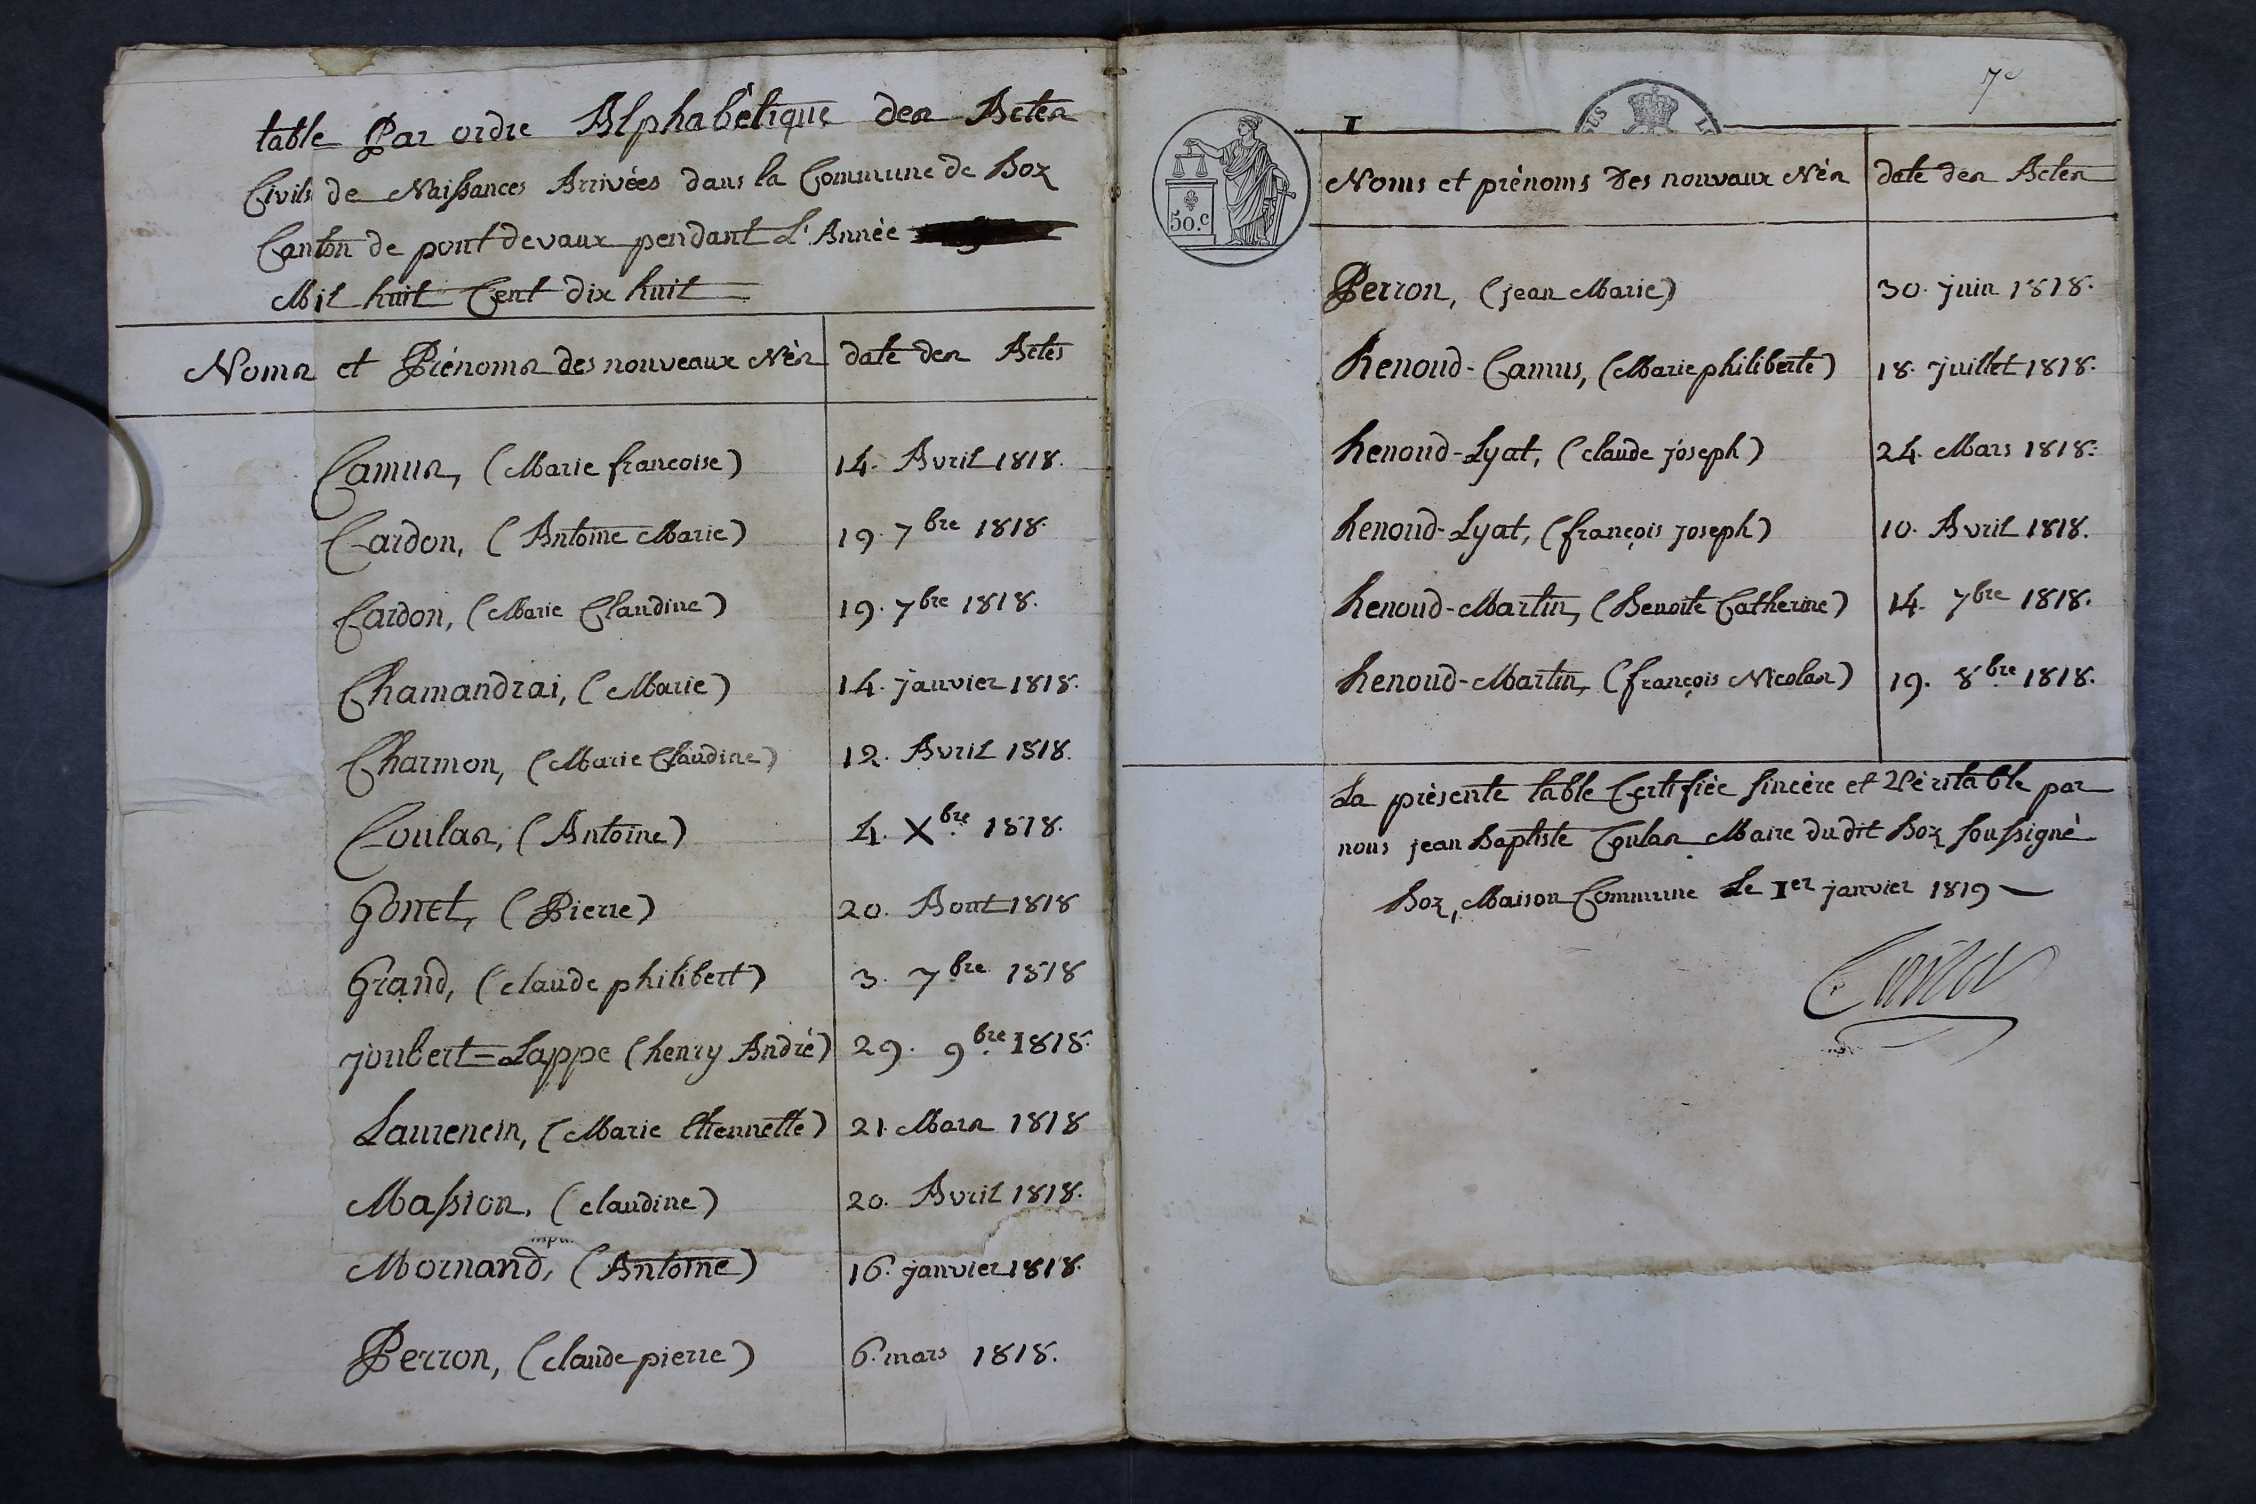 table Par ordre Alphabétique des Actes
Civils de Naissances Arrivées dans la Commune de Boz
Canton de pont devaux pendant L'Année
Mil huit Cent dix huit
Noms et Prénoms des nouveaux Nés date des Actes
Camus, (Marie francoise) 14. Avril 1818.
Cardon, (Antoine Marie) 19. 7bre 1818.
Cardon, (Marie Claudine) 19. 7bre 1818.
Chamandrai, (Marie) 14. janvier 1818.
Charmon, (Marie Claudine) 12. Avril 1818.
Coulas, (Antoine) 4. Xbre 1818.
Gonet, (Pierre) 20. Aout 1818
Grand, (claude philibert) 3. 7bre 1818
joubert=Lappe (henry André) 29. 9bre 1818.
Laurencin, (Marie Etiennette) 21. Mars 1818
Massion, (claudine) 20. Avril 1818.
Mornand, (Antoine) 16. janvier 1818.
Perron, (claude pierre) 6. mars 1818.
7e
I
50.c
Noms et prénoms des nouvaux Nés date des Actes
Perron, (jean Marie) 30. juin 1818.
Renoud-Camus, (Marie philiberte) 18. juillet 1818.
Renoud-Lyat, (claude joseph) 24. Mars 1818.
Renoud-Lyat, (françois joseph) 10. Avril 1818.
Renoud-Martin, (Benoite Catherine) 14. 7bre 1818.
Renoud-Martin, (françois Nicolas) 19. 8bre 1818.
La présente table Certifiée sincère et Véritable par
nous jean Baptiste Coulas Maire du dit Boz soussigné
Boz, Maison Commune Le 1er janvier 1819
Coulas